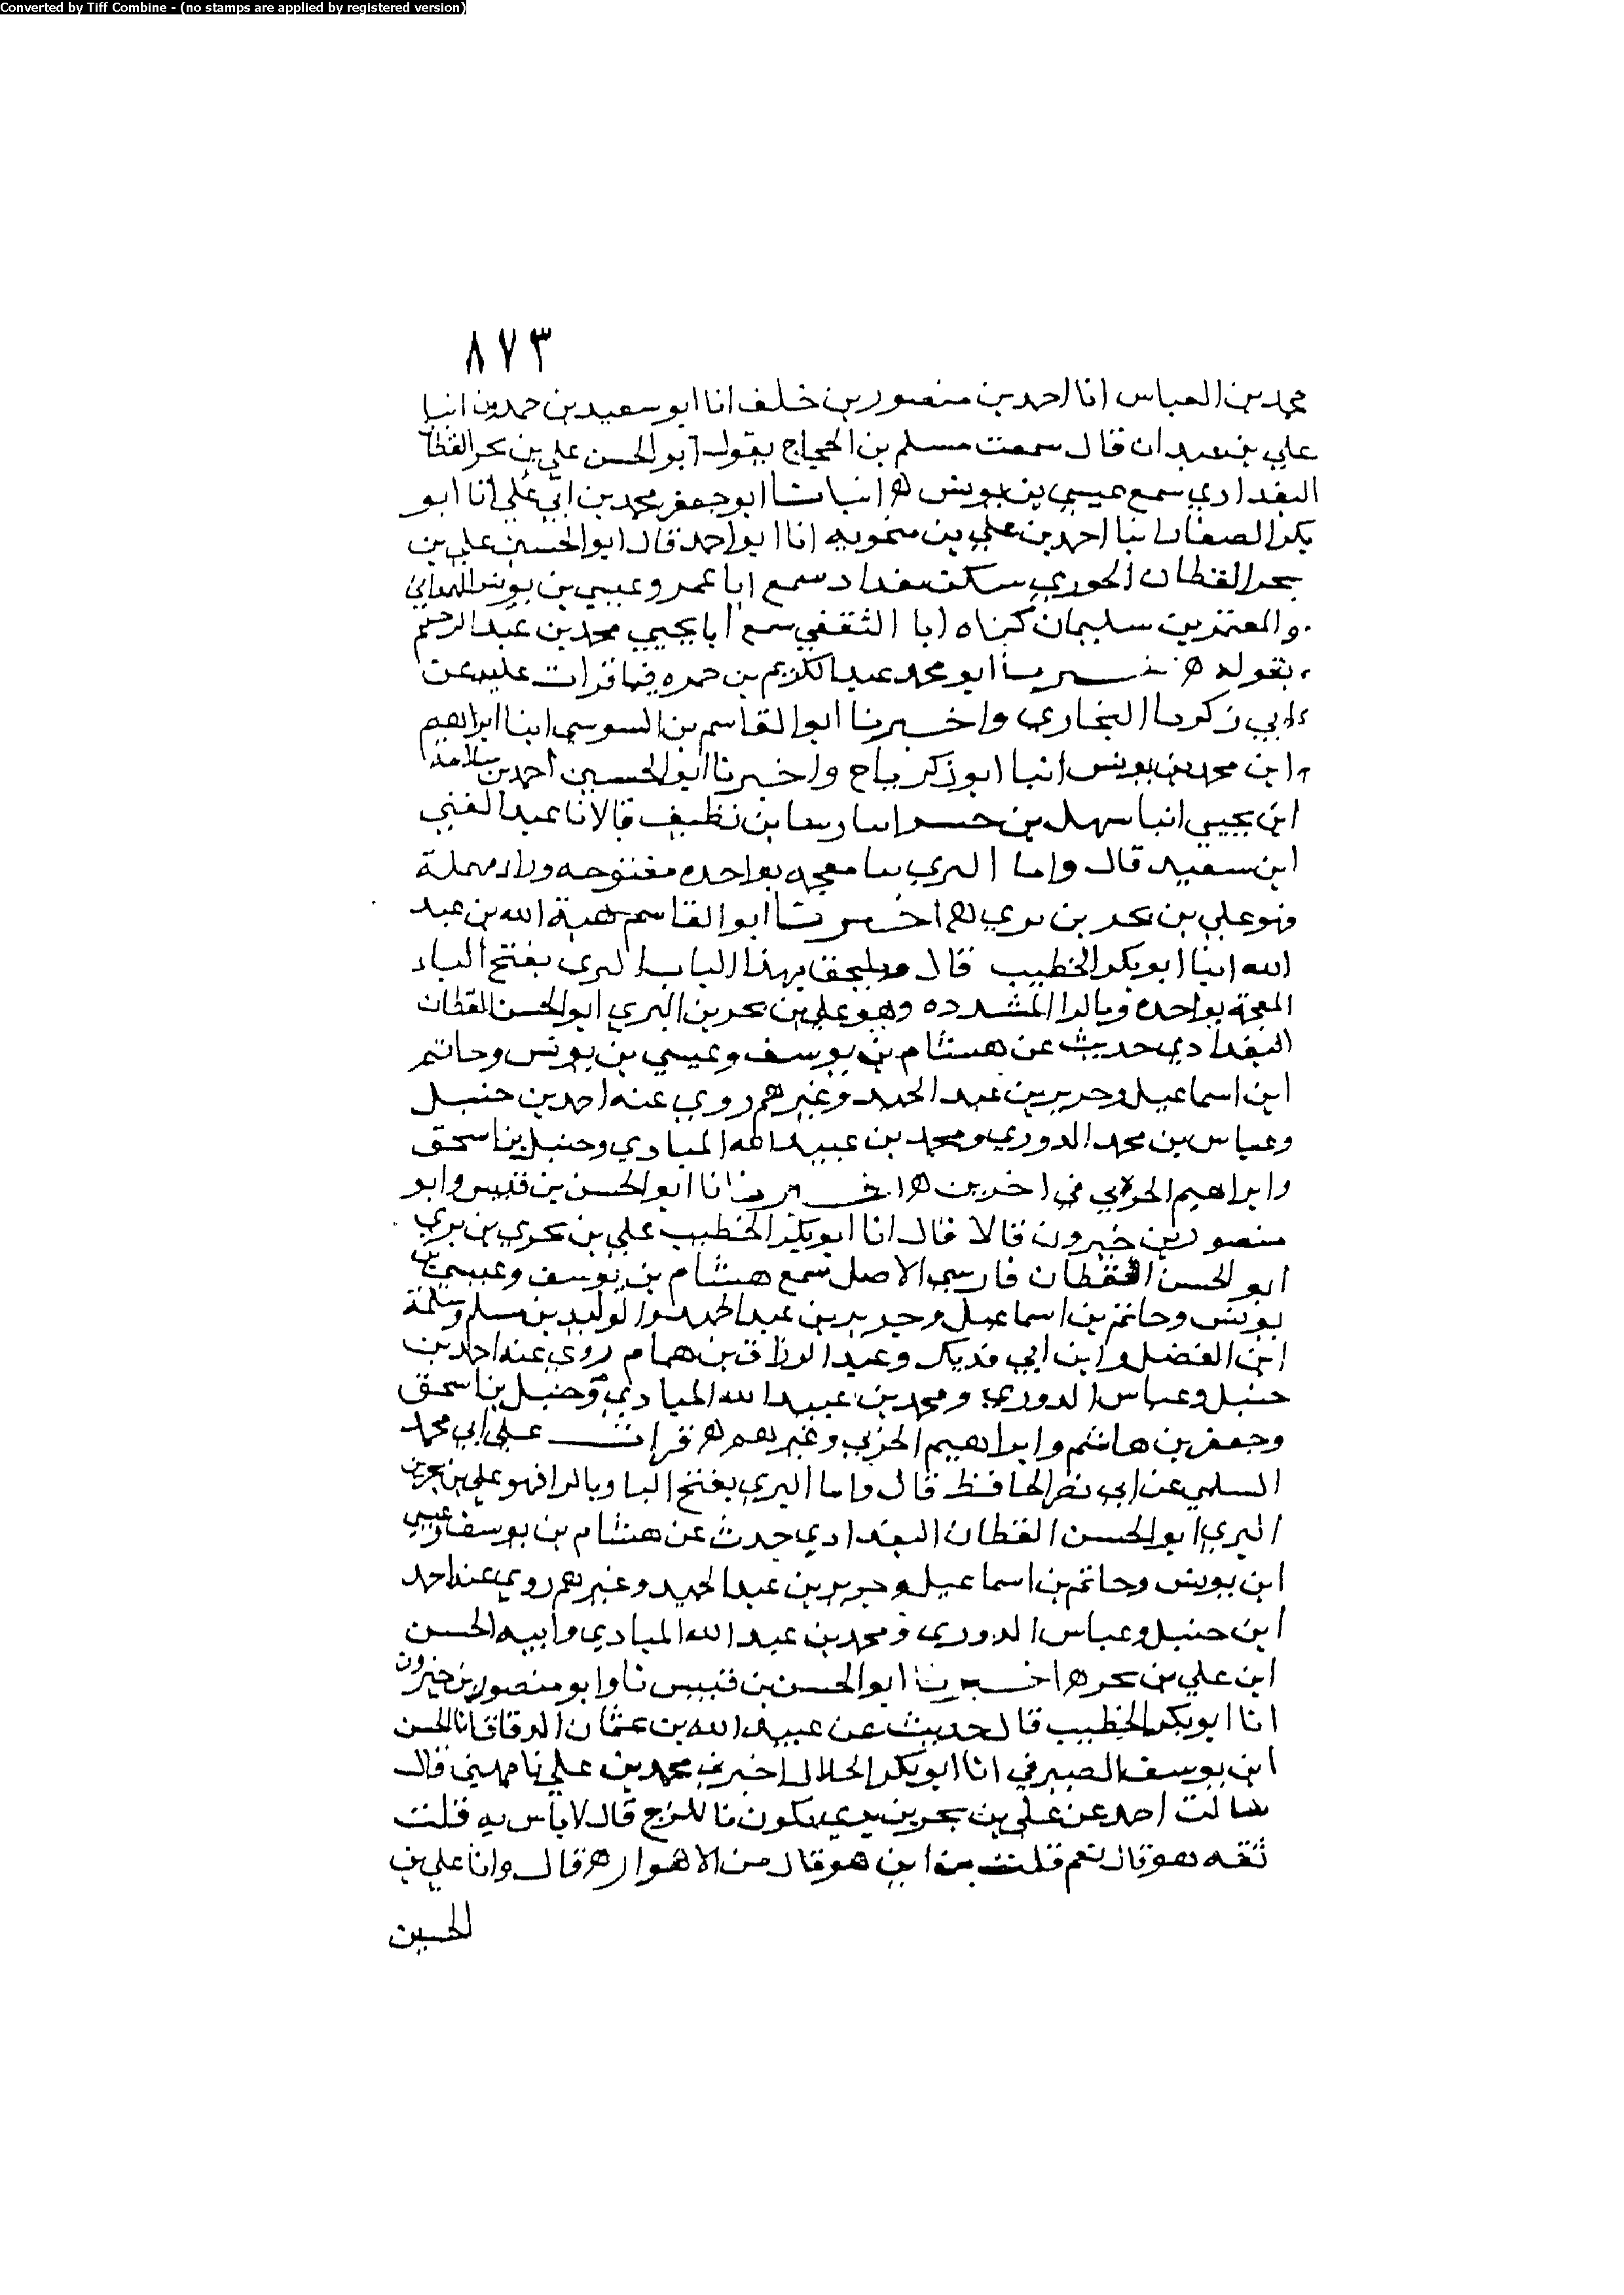 Converted by Tiff Combine - (no stamps are applied by registered version)
٨٧٣
محمد بن العباس انا احمد بن منصور بن خلف انا ابو سعيد بن حمدون انبا
علي بن عبدان قال سمعت مسلم بن الحجاج يقول ابو الحسن علي بن بحر القطان
البغدادي سمع عيسي بن يونس ه انباتا ابو جعفر محمد بن ابي علي انا ابو
بكر الصفار انبا احمد بن علي بن منجويه انا ابو احمد قال ابو الحسين علي بن
بحر القطان الحوري سكن بغداد سمع ابا عمرو عيسي بن يونس
والمعتمر بن سليمان كناه ابا الثقفي سمع ابا يحيي محمد بن عبد الرحيم
يقوله ه خبرنا ابو محمد عبد الكريم بن حمزه فيما قرات عليه عن
ابي زكريا البخاري واخبرنا ابو القاسم بن السوسي انبا ابراهيم
ابن محمد بن يونس انبا ابو زكريا ح واخبرنا ابو الحسين احمد بن سلامة
ابن يحيي انبا سهل بن انا رشا بن نظيف قالا نا عبد الغني
ابن سعيد قال واما البري ببا معجمه بواحده مفتوحه وراء مهملة
فهو علي بن بحر بن بري ه اخبرنا ابو القاسم هبة الله بن عبد
الله انبا ابو بكر الخطيب قال ويلحق بهذا الباب البري بفتح الباء
المعجمة بواحده وبالرا المشدده وهو علي بن بحر بن البري ابو الحسن القطان
البغدادي حديث عن هشام بن يوسف وعيسي بن يونس وحاتم
ابن اسماعيل وجرير بن عبد الحميد وغيرهم روي عنه احمد بن حنبل
وعباس بن محمد الدوري ومحمد بن عبيد الله المنادي وحنبل بن اسحق
وابراهيم الحربي في اخرين ه اخبرنا انا ابو الحسن بن قبيس وابو
منصور بن خيرون قالا قال انا ابو بكر الخطيب علي بن بحري بن بري
ابو الحسن القطان فارسي الاصل سمع هشام بن يوسف وعيسي بن
يونس وحاتم بن اسماعيل وجرير بن عبد الحميد والوليد بن مسلم وسلمة
ابن الفضل وابن ابي فديك وعبد الرزاق بن همام روي عنه احمد بن
حنبل وعباس الدوري ومحمد بن عبيد الله المنادي وحنبل بن اسحق
وجعفر بن هاشم وابراهيم الحربي وغيرهم ه قرات علي ابي محمد
السلمي عن ابي نصر الحافظ قال واما البري بفتح البا وبالرا فهو علي بن بحر بن
البري ابو الحسن القطان البغدادي حدث عن هشام بن يوسف وعيسي
ابن يونس وحاتم بن اسماعيل وجرير بن عبد الحميد وغيرهم روي عنه احمد
ابن حنبل وعباس الدوري ومحمد بن عبد الله المنادي وابيه الحسن
ابن علي بن بحر ه اخبرنا ابو الحسن بن قبيس نا وابو منصور بن خيرون
انا ابو بكر الخطيب قال حديث عن عبيد الله بن عثمان الدقاق انا الحسن
ابن يوسف الصيرفي انا ابو بكر الخلال اخبرني محمد بن علي نا مهني قال
سالت احمد عن علي بن بحر بن بري يكون قال لا باس به قلت
ثقه هو قال نعم قلت من اين هو قال من الاهواز ه قال وانا علي بن
الحسين